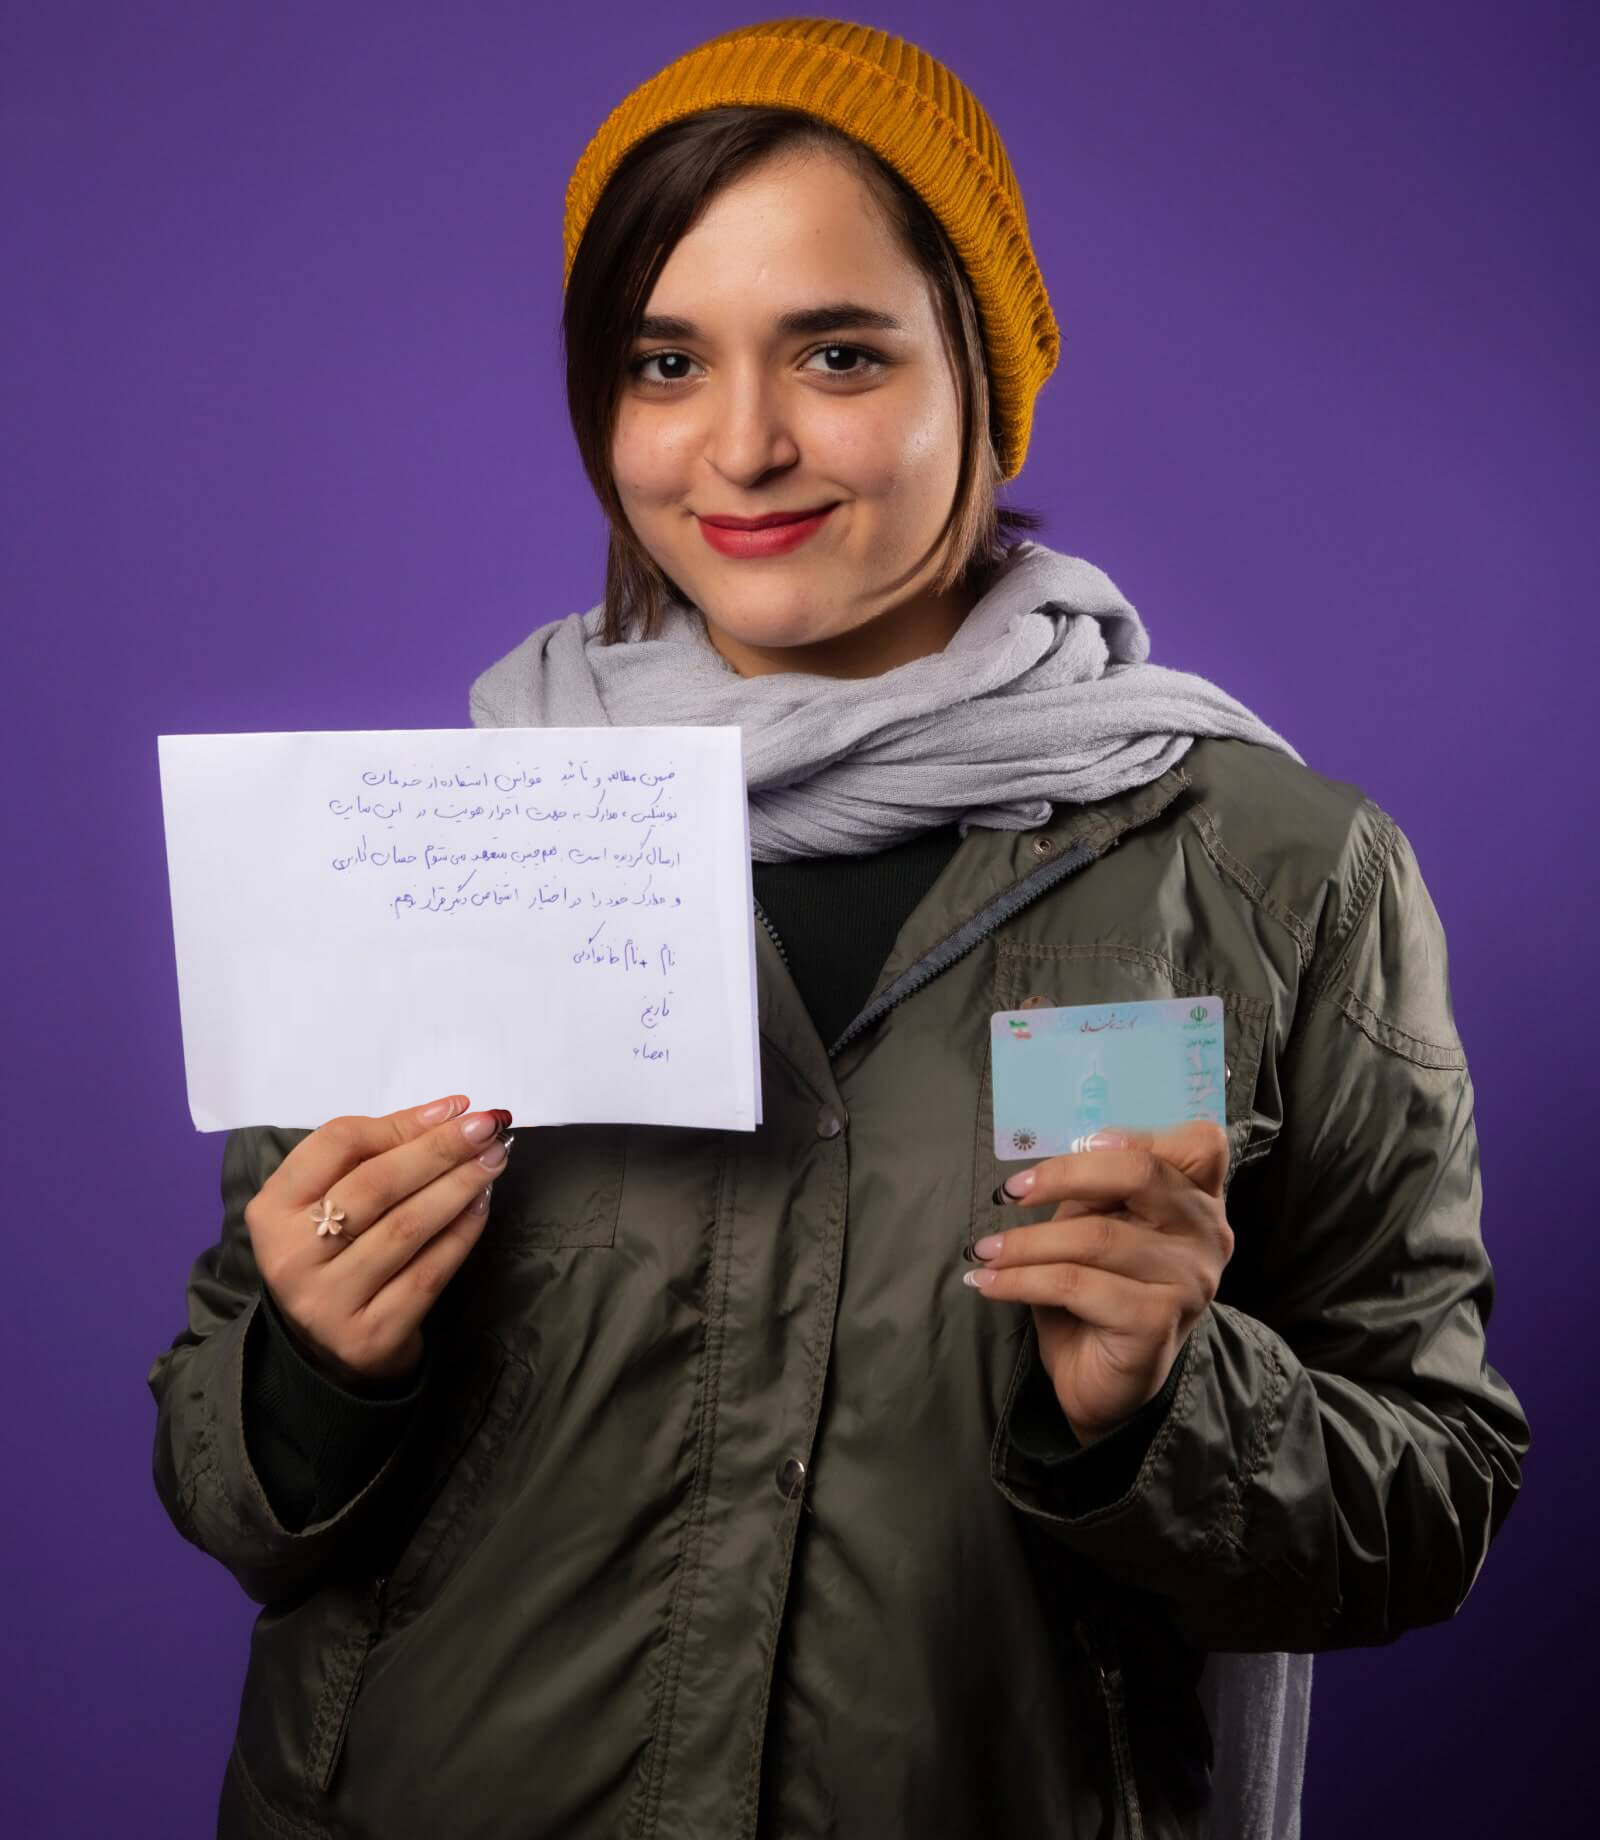 ضمن مطالعه و تائید قوانین استفاده از خدمات
نوبیتکس، مدارک به جهت احراز هویت در این سایت
ارسال گردیده است. همچنین متعهد می‌شوم حساب کاربری
و مدارک خود را در اختیار اشخاص دیگر قرار ندهم.
نام + نام خانوادگی
تاریخ
امضاء
کارت هوشمند ملی
شماره ملی